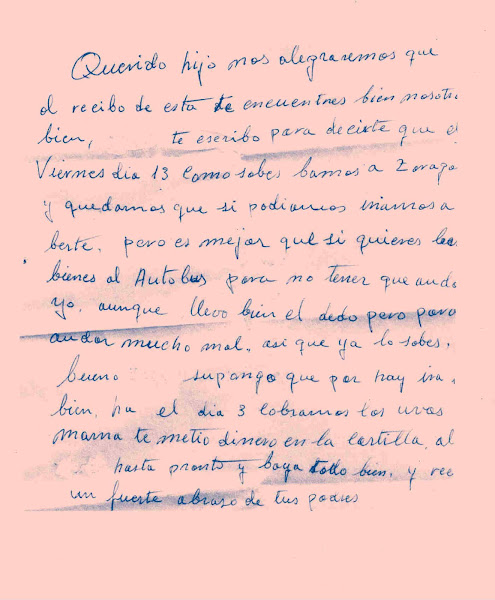 Querido hijo nos alegraremos que
al recibo de esta te encuentres bien nosotr
bien, te escribo para decirte que el
Viernes dia 13 como sabes bamos a Zarago
y quedamos que si podiamos iriamos a
berte, pero es mejor que si quieres
bienes al Autobus para no tener que anda
yo, aunque llevo bien el dedo pero para
andar mucho mal, asi que ya lo sabes,
bueno supongo que por hay ira
bien, ha el dia 3 cobramos las uvas
mama te metio dinero en la cartilla, al
hasta pronto y baya todo bien, y rec
un fuerte abraso de tus padres